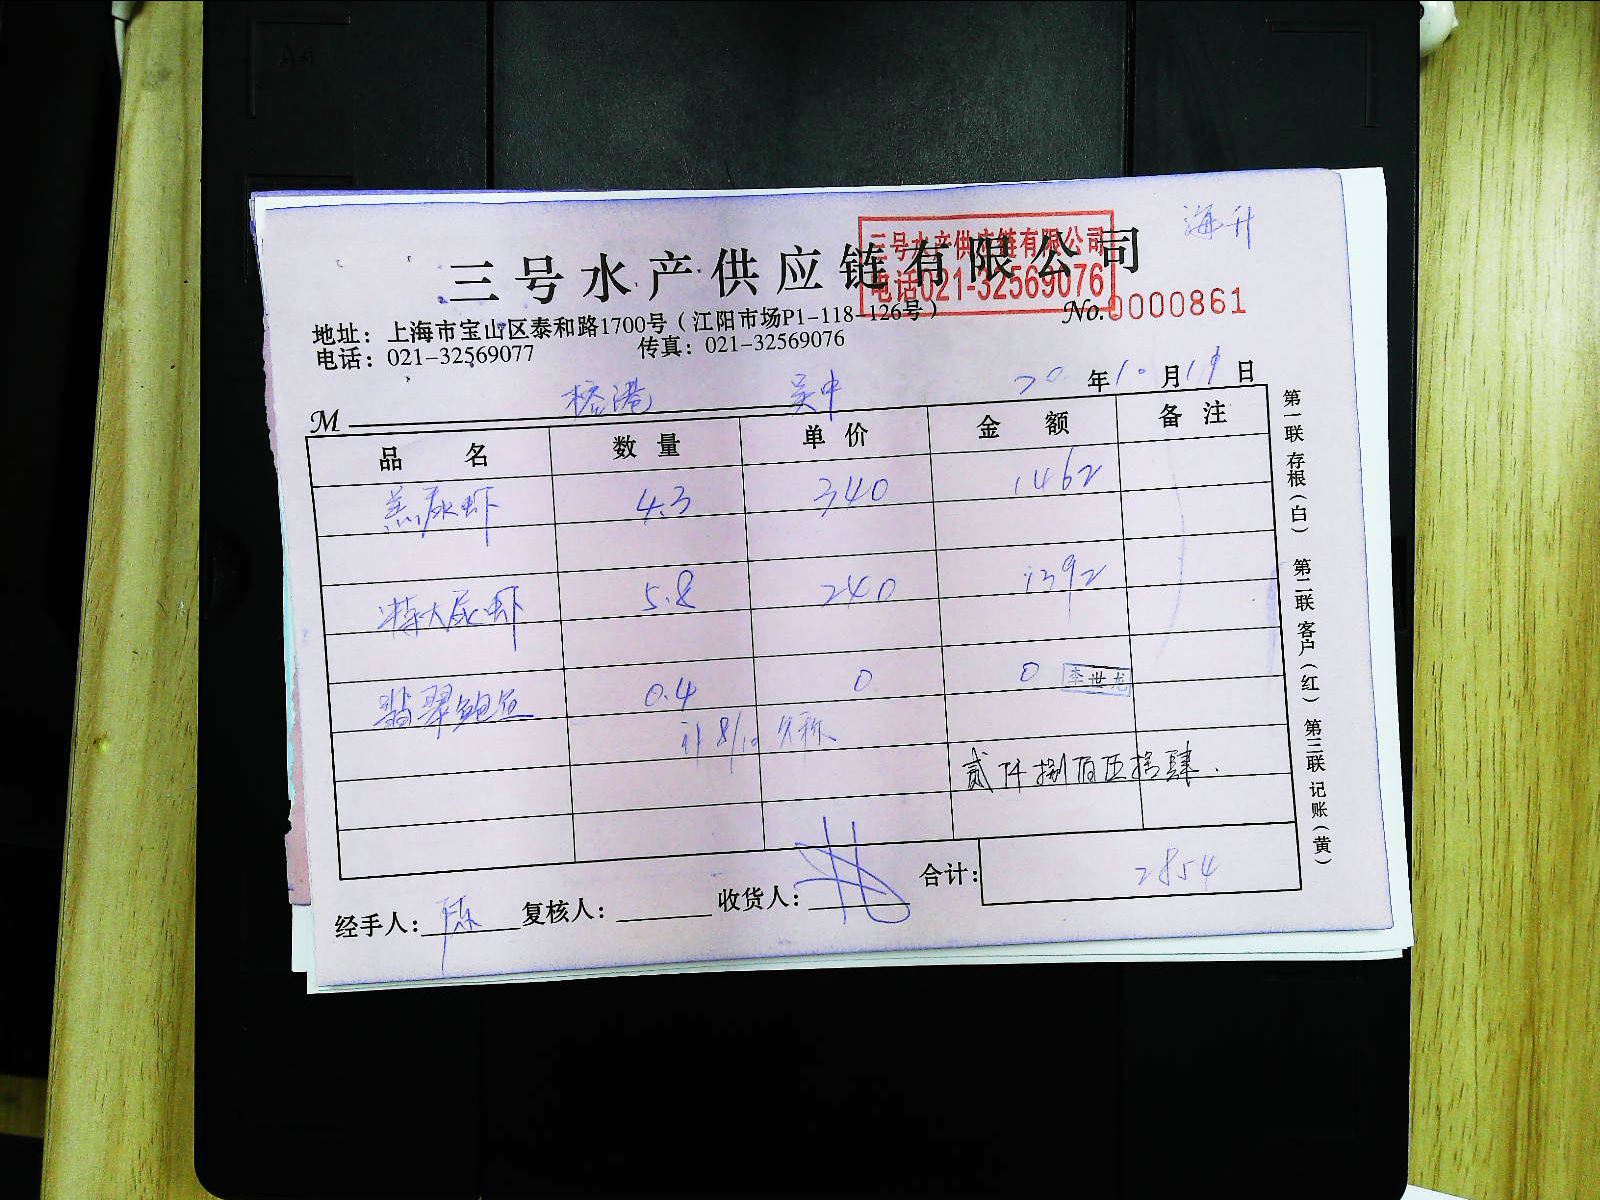 海升
三号水产供应链有限公司
三号水产供应链有限公司
电话021-32569076
地址：上海市宝山区泰和路1700号（江阳市场P1-118-126号）
No.0000861
电话：021-32569077 传真：021-32569076
20年10月19日
M 吴中
品名 数量 单价 金额 备注
尿虾 4.3 340 1462
特大尿虾 5.8 240 1392
翡翠鲍鱼 0.4 0 0 李世龙
8/10
贰仟捌佰伍拾肆.
合计： 2854
经手人：陈 复核人： 收货人：
第一联 存根（白） 第二联 客户（红） 第三联 记账（黄）